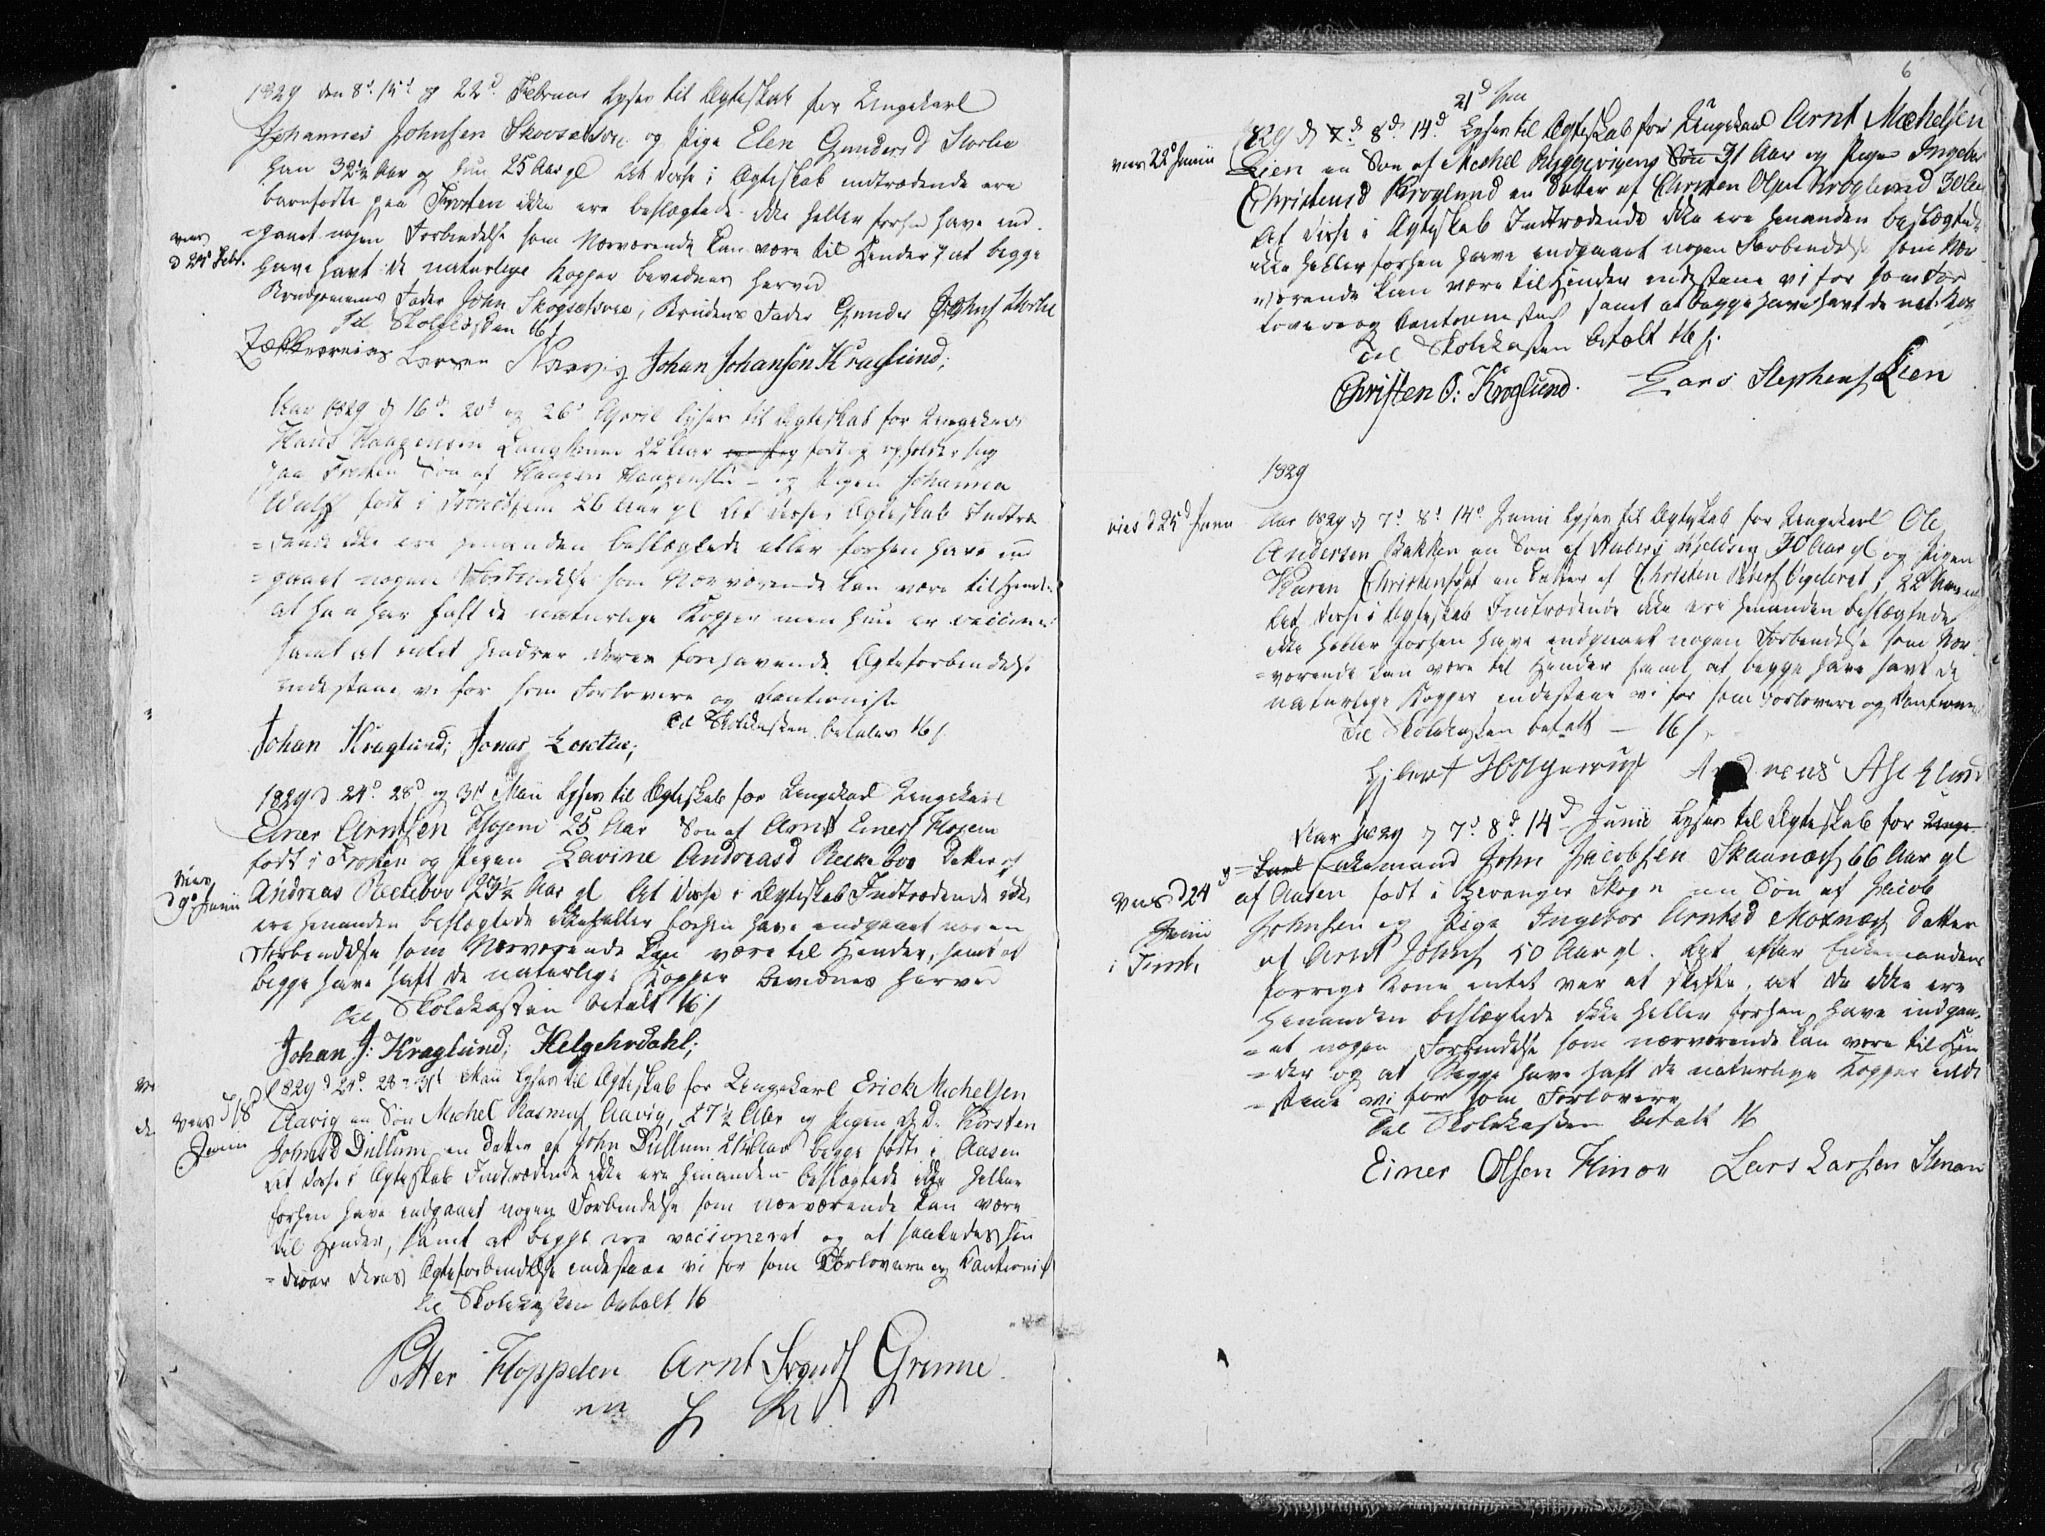 1829 den 8d 15d og 22d Februar lyses til Ægteskab for Ungekarl
Johannes Johnsen Skovselsvre og Pige Elen Gundersd Storlie
han 32½ Aar og hun 25 Aar gl At disse i Ægteskab indtrædende ere
barnfødte paa Frosten ikke ere beslægtede ikke heller forhen have ind
=gaaet nogen Forbindelse som Nærværende kan være til Hinder, at begge
vies
d 24d Febr.
have havt de naturlige Kopper bevidnes herved
Brudgommens Fader John Skogselsvre, Brudens Fader Gunder Storlie
Til Skolekassen 16 s
Larsen Norvig Johan Johansen Kraglund;
Aar 1829 d 16d 20d og 26d April lyses til Ægteskab for Ungekarl
Hans Haagensen 22 Aar født og opholder sig
paa Frosten Søn af Haagen Haagensen og Pigen Johanna
Wulff født i Trondhjem 26 Aar gl At disse i Ægteskab Indtræ
=dende ikke ere hinanden beslægtede eller forhen have ind
=gaaet nogen Forbindelse som Nærværende kan være til Hinder
at han har haft de naturlige Kopper men hun er vaccineret
samt at intet hindrer deres forehavende Ægteforbindelse
indestaae vi for som Forlovere og Cautionister
Til Skolekassen betales 16 s
Johan Kraglund; Jonas
1829 d 24d 28d og 31d Maii lyses til Ægteskab for Ungekarl
Einer Arntsen Hojem 25 Aar Søn af Arnt Einers Hojem
født i Frosten og Pigen Lavine Andreasd Reekeboe Datter af
vies
d 9d Junii
Andreas Reekeboe 23½ Aar gl At disse i Ægteskab Indtrædende ikke
ere hinanden beslægtede ikke heller forhen have indgaaet nogen
Forbindelse som Nærværende kan være til Hinder, samt at
begge have haft de naturlige Kopper bevidnes herved
Til Skolekassen betalt 16 s
Johan J: Kraglund; Helgehrdahl;
1829 d 24d 28 og 31d Maii lyses til Ægteskab for Ungekarl Erick Michelsen
vies d 18d
Junii
Aavig en Søn Michel Rasmus Aavig, 27½ Aar og Pigen Kirsten
Johnsd Dullum en Datter af John Dullum Aar begge født i Aasen
At disse i Ægteskab Indtrædende ikke ere hinanden beslægtede ikke heller
forhen have indgaaet nogen Forbindelse som nærværende kan være
til Hinder, samt at begge ere vaccineret og at saaledes hin
=drer deres Ægteforbindelse indestaae vi for som Forlovere og Cautionist
til Skolekassen betalt 16
Petter Hoppelen Arnt Svends Grinne
6
21d
vies 22d Junii
1829 d 7d 8d 14d Lyses til Ægteskab for Ungekarl Arnt Mechelsen
Lien en Søn af Mechel Byggevigens Søn 31 Aar og Pige Ingebor
Christensd Kroglund en Datter af Christen Olsen Kroglund 30 Aar
At disse i Ægteskab Indtrædende ikke ere hinanden beslægtede
ikke heller forhen have indgaaet nogen Forbindelse som Nær
værende kan være til Hinder indestaae vi for som For
lovere og Cautionister samt at begge have havt de nat: Kop
Til Skolekassen betalt 16 s.
Christen O: Kroglund. Lars Stephens Lien
1829
vies d 25d Junii
Aar 1829 d 7d 8d 14d Junii lyses til Ægteskab for Ungekarl Ole
Andersen Bakken en Søn af Anders 30 Aar gl og Pigen
Karen Christensdat en Datter af Christen 22 Aar
At disse i Ægteskab Indtrædende ikke ere hinanden beslægtede
ikke heller forhen have indgaaet nogen Forbindelse som Nær
=værende kan være til Hinder samt at begge have havt de
naturlige Kopper indestaae vi for som Forlovere og Cautioni
Til Skolekassen betalt — 16 s
Andreas Aschlund
Aar 1829 d 7d 8d 14d Junii lyses til Ægteskab for Unge
vies d 24d
Junii
karl Enkemand John Jacobsen Skaanæs 66 Aar gl
af Aasen født i Levanger Skogn en Søn af Jacob
Johnsen og Pige Ingebor Arntsd Moxnæs Datter
af Arnt Johns 50 Aar gl. At efter Enkemandens
forrige Kone intet var at skifte, at de ikke ere
hinanden beslægtede ikke heller forhen have indgaa
=et nogen Forbindelse som nærværende kan være til Hin
=der og at begge have haft de naturlige Kopper inde
=staae vi for som Forlovere
Til Skolekassen betalt 16
Einer Olsen Hinoe Lars Larsen